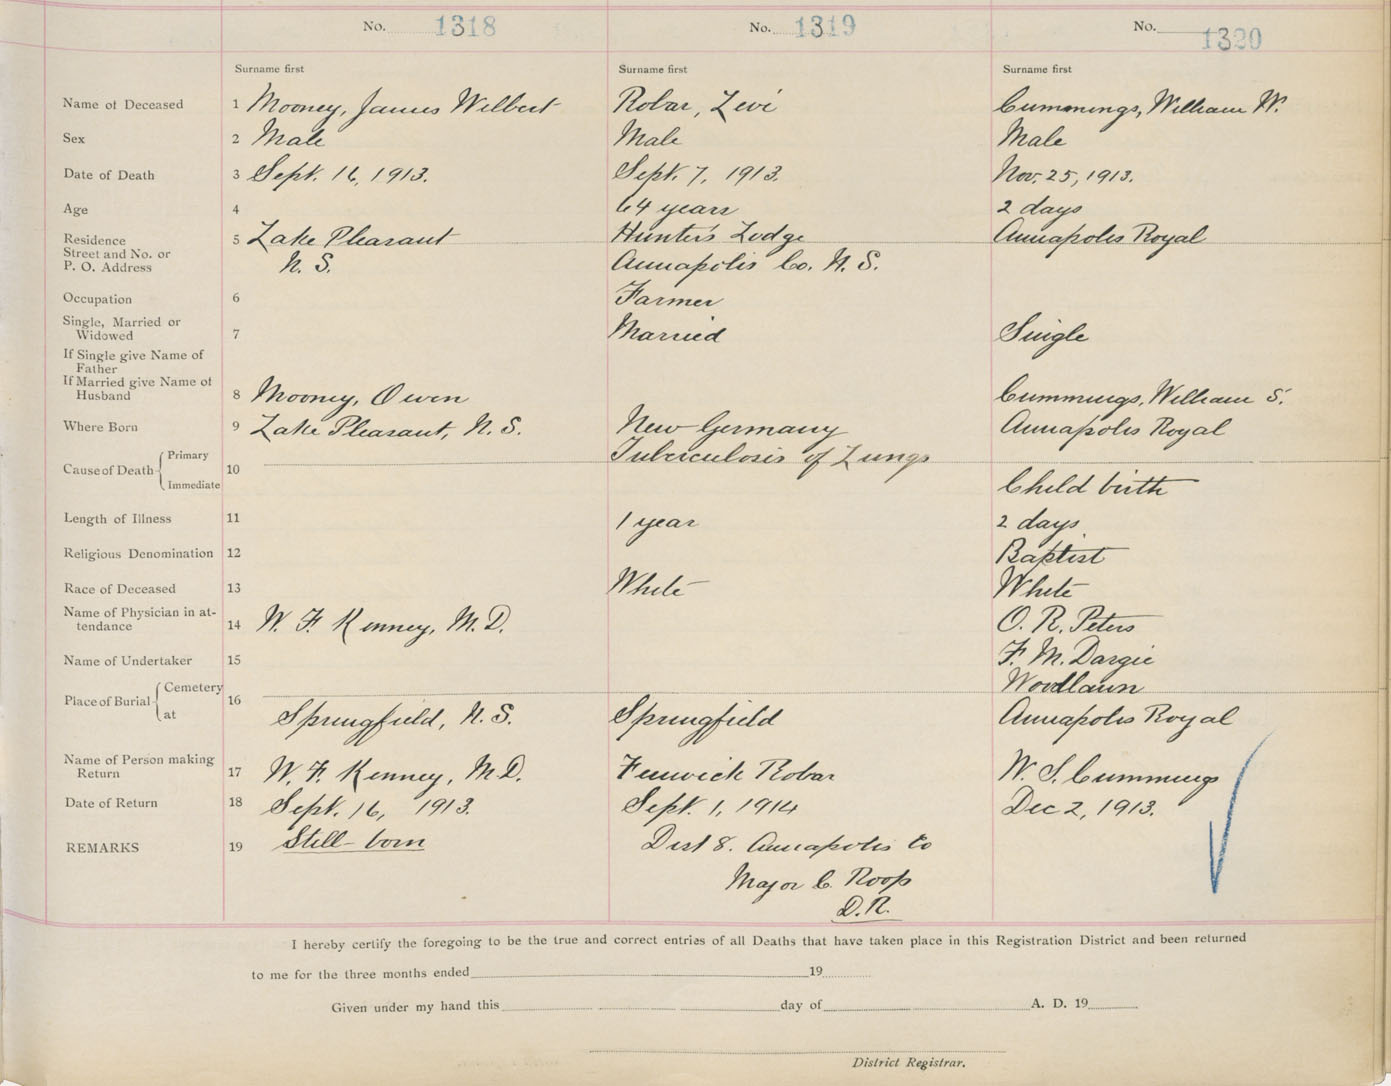 No. 1318 No. 1319 No. 1320
Surname first Surname first Surname first
Name of Deceased 1 Mooney, James Wilbert Robar, Levi Cummings, William W.
Sex 2 Male Male Male
Date of Death 3 Sept. 16, 1913. Sept. 7, 1913. Nov. 25, 1913.
Age 4 64 years 2 days
Residence 5 Lake Pleasant Hunter's Lodge Annapolis Royal
Street and No. or
P. O. Address N. S. Annapolis Co. N. S.
Occupation 6 Farmer
Single, Married or
Widowed 7 Married Single
If Single give Name of
Father
If Married give Name of
Husband 8 Mooney, Owen Cummings, William S.
Where Born 9 Lake Pleasant, N. S. New Germany Annapolis Royal
Cause of Death Primary 10 Tuberculosis of Lungs
Immediate Child birth
Length of Illness 11 1 year 2 days
Religious Denomination 12 Baptist
Race of Deceased 13 White White
Name of Physician in at-
tendance 14 W. F. Kenney, M. D. O. R. Peters
Name of Undertaker 15 F. M. Dargie
Place of Burial Cemetery 16 Woodlawn
at Springfield, N. S. Springfield Annapolis Royal
Name of Person making
Return 17 W. F. Kenney, M.D. Fenwick Robar W. S. Cummings
Date of Return 18 Sept. 16, 1913. Sept. 1, 1914 Dec 2, 1913.
REMARKS 19 Still-born Dist 8. Annapolis Co
Major C. Roop
D.R.
I hereby certify the foregoing to be the true and correct entries of all Deaths that have taken place in this Registration District and been returned
to me for the three months ended 19
Given under my hand this day of A. D. 19
District Registrar.